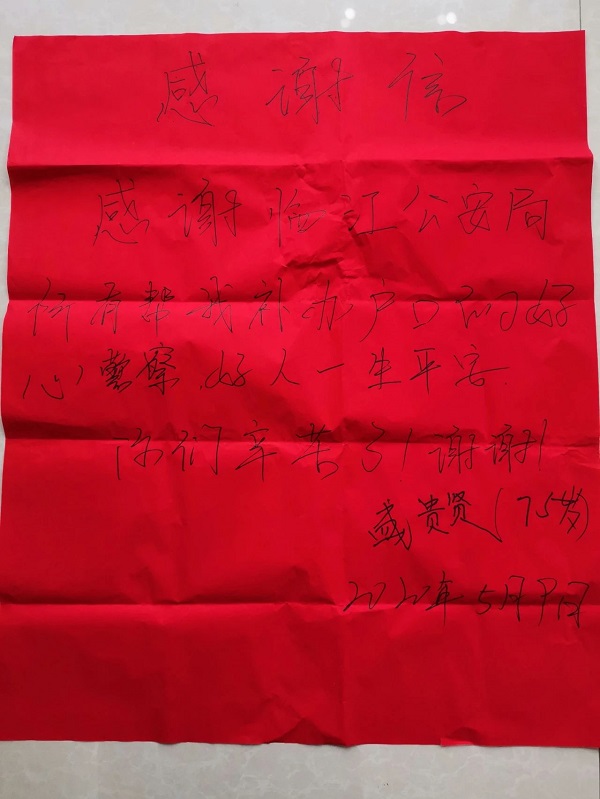 感谢信
感谢临江公安局
所有帮我补办户口的好
心警察.好人一生平安.
你们辛苦了!谢谢!
盛贵贤(75岁)
2020年5月9日